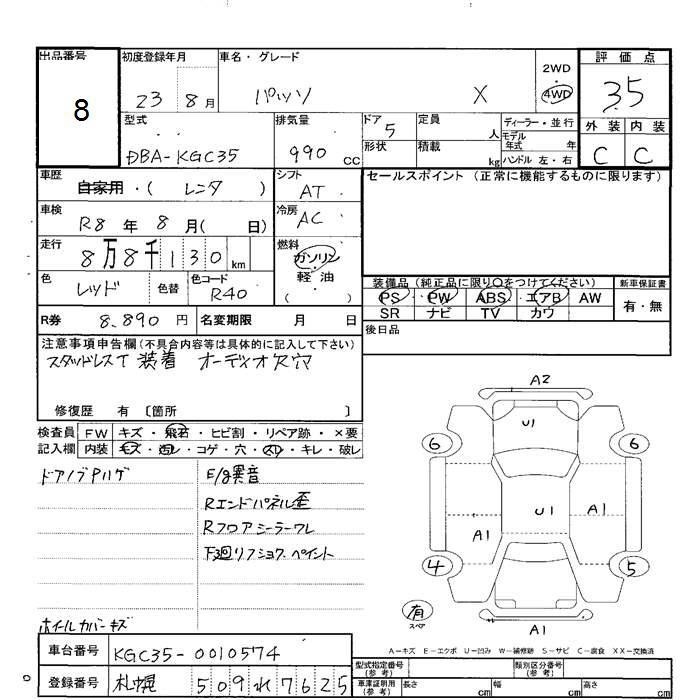 出品番号 8
初度登録年月 23 8月
車名・グレード パッソ X
2WD 4WD
評価点 35
外装 内装
C C
型式 DBA-KGC35
排気量 990 cc
ドア 5
形状
定員 人
積載 kg
ディーラー・並行
モデル年式 年
ハンドル 左・右
車歴 自家用・( レンタ )
シフト AT
セールスポイント (正常に機能するものに限ります)
車検 R8 年 8 月( 日)
冷房 AC
走行 8万8千130 km
燃料 ガソリン 軽油 ( )
色 レッド 色替
色コード R40
装備品 (純正品に限り○をつけてください)
新車保証書
PS PW ABS エアB AW
SR ナビ TV カワ
有・無
R券 8,890 円 名変期限 月 日
後日品
注意事項申告欄(不具合内容等は具体的に記入して下さい)
スタッドレスT 装着 オーディオ欠穴
修復歴 有 〔箇所 〕
検査員記入欄
FW キズ・飛石・ヒビ割・リペア跡・×要
内装 キズ・汚レ・コゲ・穴・スリ・キレ・破レ
ドアノブPハゲ
E/g異音
Rエンドパネル歪
Rフロアシーラーワレ
下廻リフショク ペイント
ホイールカバーキズ
A2
U1
6 6
U1 A1
A1
4 5
有 スペア
A1
A-キズ E-エクボ U-凹み W-補修跡 S-サビ C-腐食 XX-交換済
車台番号 KGC35-0010574
型式指定番号(参考)
類別区分番号(参考)
登録番号 札幌 509 れ 7625
車庫証明用(参考) 長さ cm 幅 cm 高さ cm